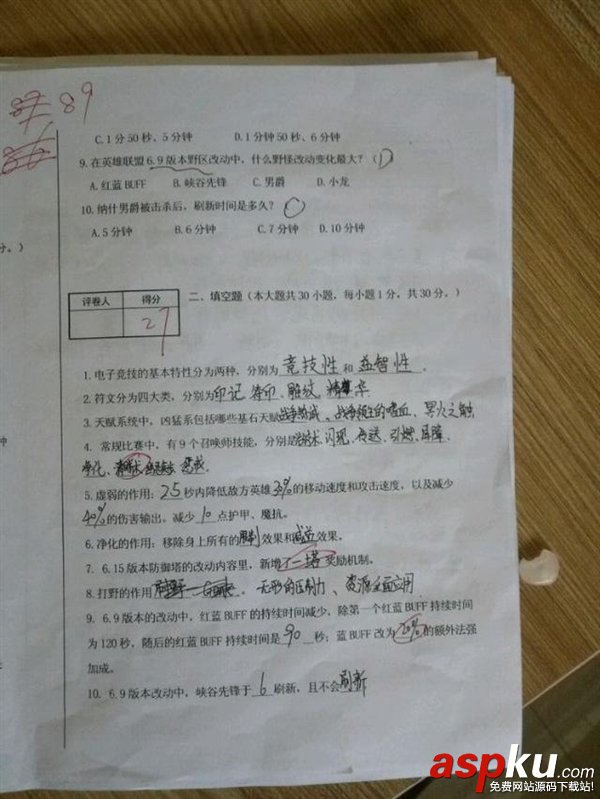 89
C.1分50秒、5分钟 D.1分钟50秒、6分钟
9.在英雄联盟6.9版本野区改动中，什么野怪改动变化最大？（D）
A.红蓝BUFF B.峡谷先锋 C.男爵 D.小龙
10.纳什男爵被击杀后，刷新时间是多久？
A.5分钟 B.6分钟 C.7分钟 D.10分钟
分。）
评卷人 得分
27
二、填空题（本大题共30小题，每小题1分，共30分。）
1.电子竞技的基本特性分为两种，分别为 竞技性 和 益智性 。
2.符文分为四大类，分别为印记 符印、雕纹、精华
3.天赋系统中，凶猛系包括哪些基石天赋战争热诚、战争领主的嗜血、冥火之触
4. 常规比赛中，有9个召唤师技能，分别是 闪现、传送、引燃、屏障、
净化、 惩戒.
5.虚弱的作用：2.5秒内降低敌方英雄30%的移动速度和攻击速度，以及减少
40%的伤害输出。减少 10 点护甲、魔抗。
6.净化的作用：移除身上所有的 效果和减益效果。
7. 6.15版本防御塔的改动内容里，新增了一塔奖励机制。
8.打野的作用 无形的压制力、资源全面应用
9. 6.9版本的改动中，红蓝BUFF的持续时间减少，除第一个红蓝BUFF持续时间
为120秒，随后的红蓝BUFF持续时间是 90 秒；蓝BUFF改为 20% 的额外法强
加成。
10. 6.9版本改动中，峡谷先锋于 6 刷新，且不会刷新
钟
aspku.com
免费网站源码下载站!